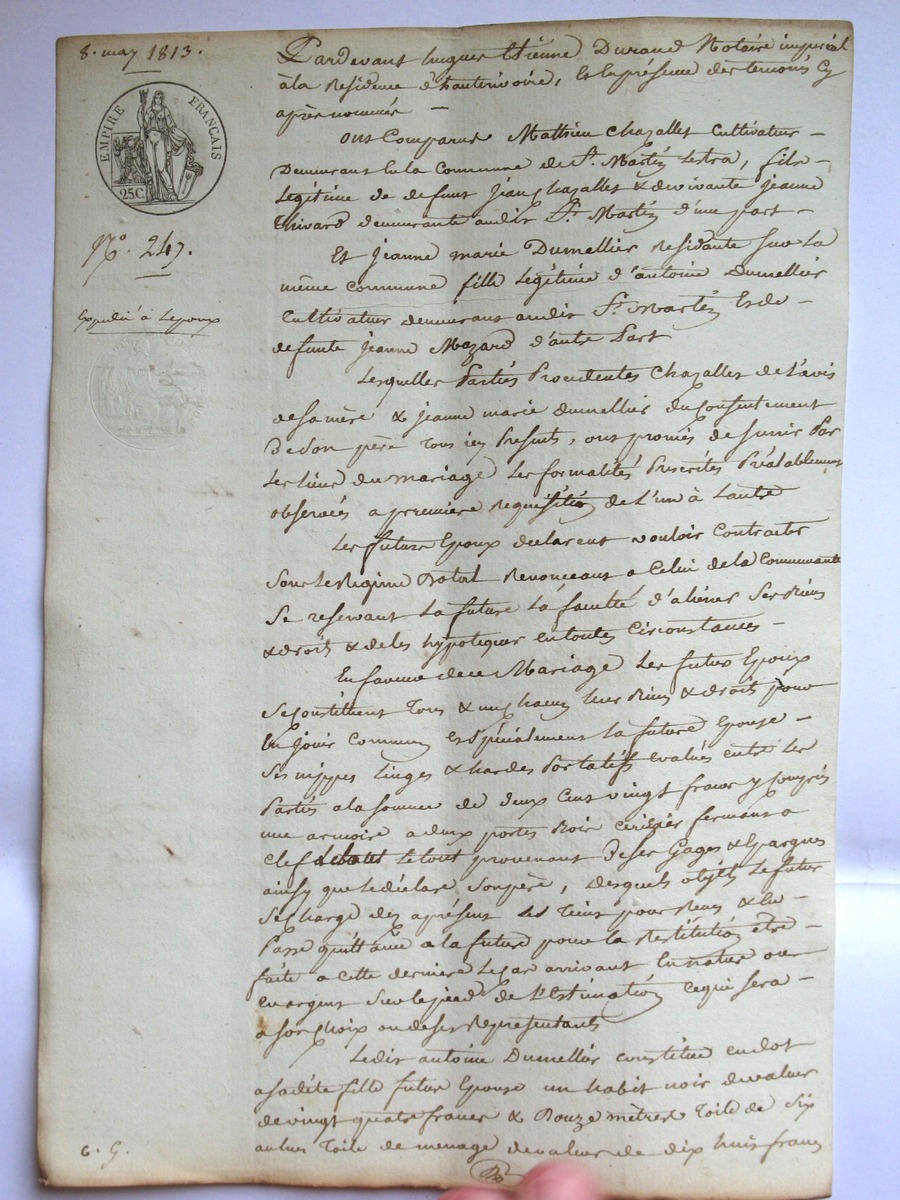 8. may 1813.
EMPIRE FRANÇAIS
25C
N° 247.
Expedié à Lepoux
Pardevant hugues Etienne Durand Notaire imperial
à la Residence d'hauterivoire, Et En présence des temoins cy
après nommés —
ont Comparu Mathieu Chazallet Cultivateur —
Demeurant En la Commune de St. Martin Lestra, fils —
Legitime de defunt jean Chazallet & de vivante jeanne
Thivard demeurante audit St. Martin d'une part —
Et jeanne marie Dumellier Residante sur La
même Commune fille Legitime d'antoine Dumellier
Cultivateur demeurant audit St. Martin Et de —
defunte jeanne Mazard d'autre Part
Lesquelles Parties Procedentes Chazallet de L'avis
de sa mère & jeanne marie dumellier du Consentement
De Son père Tous icy Presents, ont promis de s'unir Par
Les Liens du mariage Les formalités Prescrites Préalablement
observées a premiere Requisition de L'un à Lautre
Les futurs Epoux declarent vouloir Contracter
Sous Le Regime Dotal Renonceant a Celui de la Communauté
Se reservant La future La faculté d'aliéner Ses Biens
& droits & de les hypotequer en toutes Circonstances —
En faveur de ce Mariage Les futurs Epoux
Se Constituent Tous & un chacun leurs Biens & droits pour
En jouir Commun et Spécialement la future Epouse —
Ses nippes Linges & hardes Portatifs evalués entre Les
Parties a la somme de deux Cent vingt francs y Compris
une armoire a deux portes Bois Cerisier fermant a
clef Le tout provenant De ses Gages & Epargnes
ainsy que Le déclare Son père, desquels objets Le futur
Se Charge dez apresent Les Tient pour Reçus & En —
Passe quittance a la future pour la Restitution être —
faite a Cette derniere Le Cas arrivant En nature ou
en argent Sur Le pied de L'Estimation Ce qui sera —
a son Choix ou de ses Représentants
Ledit antoine Dumellier constitue en dot
a sa dite fille future Epouse un habit noir de valeur
de vingt quatre francs & Douze mètres Toile de Six
aulnes Toile de menage de valeur de dix huit francs